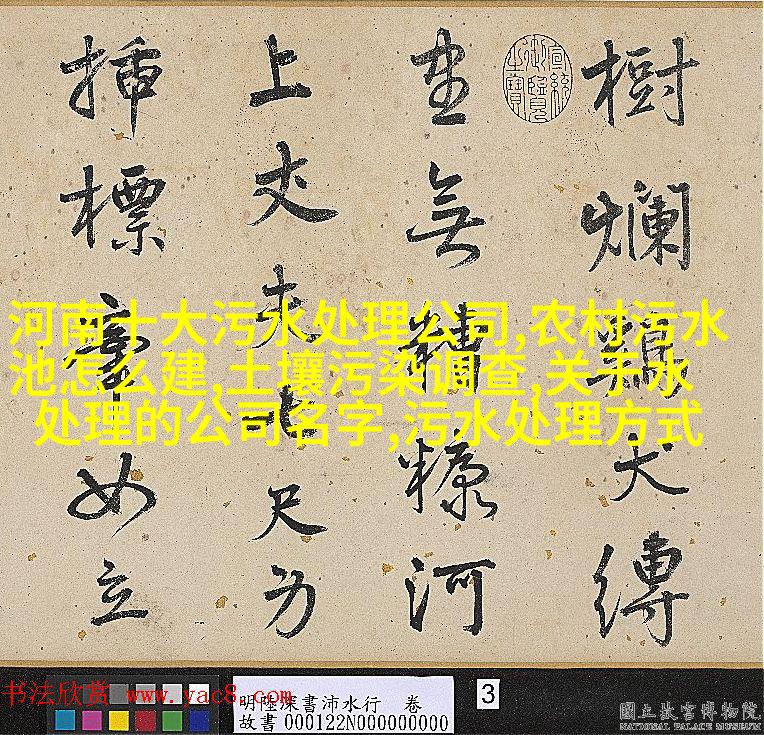 樹爛鷄犬縛
無精糠河
上丈夫七尺
插標如立
宣統御覽之寶
河南十大污水处理公司,农村污水
池怎么建,土壤污染调查,关于水
处理的公司名字,污水处理方式
书法欣赏 www.yac8.com
明陸深書沛水行 卷
故書 000122N000000000
3
國立故宮博物院
NATIONAL PALACE MUSEUM